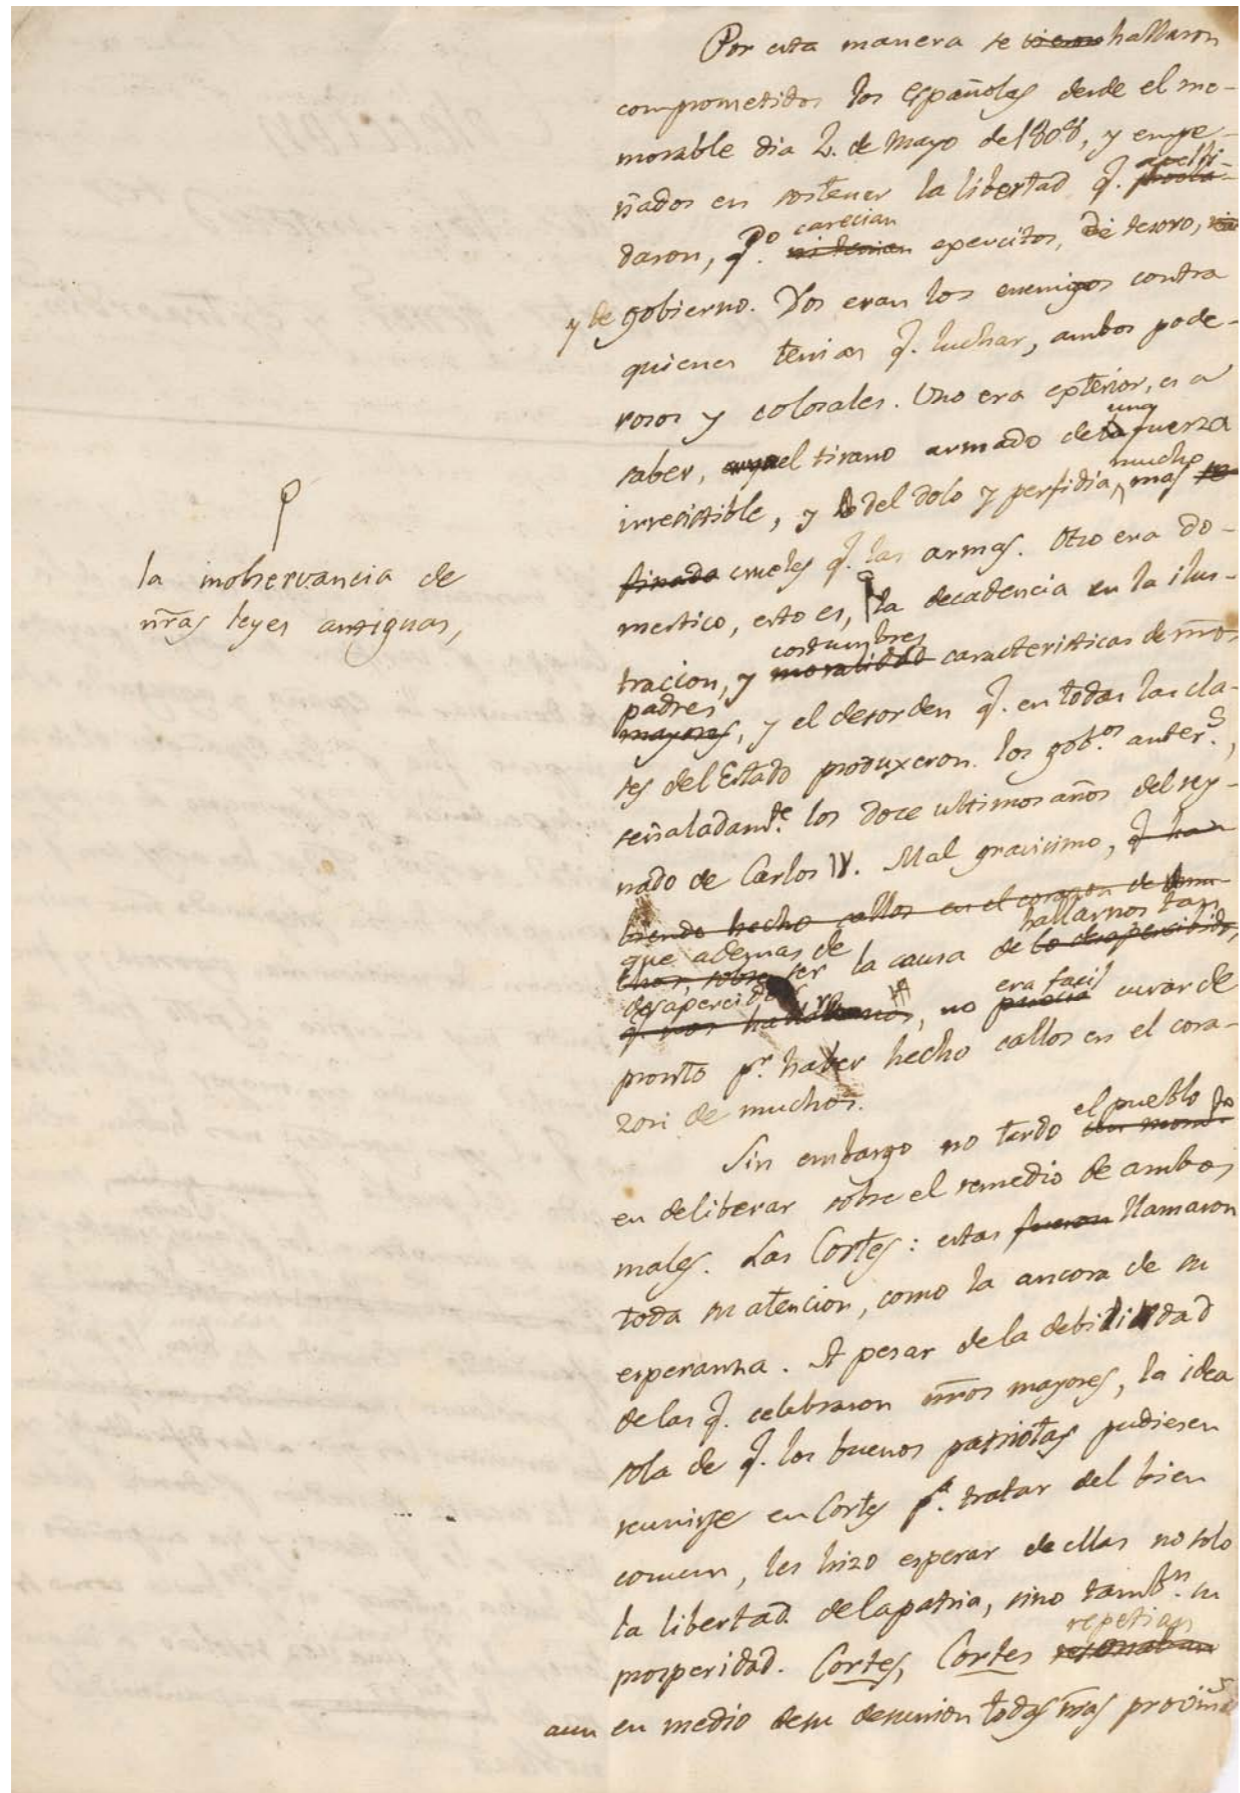 Por esta manera se hallaron
comprometidos los Españoles desde el me-
morable dia 2. de Mayo de 1808, y empe-
apelli-
ñados en sostener la libertad q.
carecian
daron, q.do exercitos, de tesoro,
y de gobierno. Dos eran los enemigos contra
quienes tenian q. luchar, ambos pode-
rosos y colosales. Uno era exterior, es a
una
saber, el tirano armado de fuerza
mucho
irresistible, y del dolo y perfidia, mas
crueles q. las armas. Otro era do-
mestico, esto es, la decadencia en la ilus-
la inobservancia de
nr̃as leyes antiguas,
costumbres
tracion, y moralidad caracteristicas de nr̃os
padres
mayores, y el desorden q. en todas las cla-
ses del Estado produxeron los gob.os anter.s,
señaladam.te los doce ultimos años del rey-
nado de Carlos IV. Mal gravisimo, q. ha-
biendo hecho callos en el corazon de
hallarnos tan
que ademas de
ser la causa de lo desapercibidos,
desapercibidos era facil
q. nos, no curar de
pronto p.r haber hecho callos en el cora-
zon de muchos.
el pueblo
Sin embargo no tardó
en deliberar sobre el remedio de ambos
males. Las Cortes: estas fueron llamaron
toda su atencion, como la ancora de su
esperanza. A pesar de la debilidad
de las q. celebraron nr̃os mayores, la idea
sola de q. los buenos patriotas pudiesen
reunirse en Cortes p.a tratar del bien
comun, les hizo esperar de ellas no solo
la libertad de la patria, sino tamb.n su
repetian
prosperidad. Cortes, Cortes resonaban
aun en medio de su desunion todas nr̃as provin.s